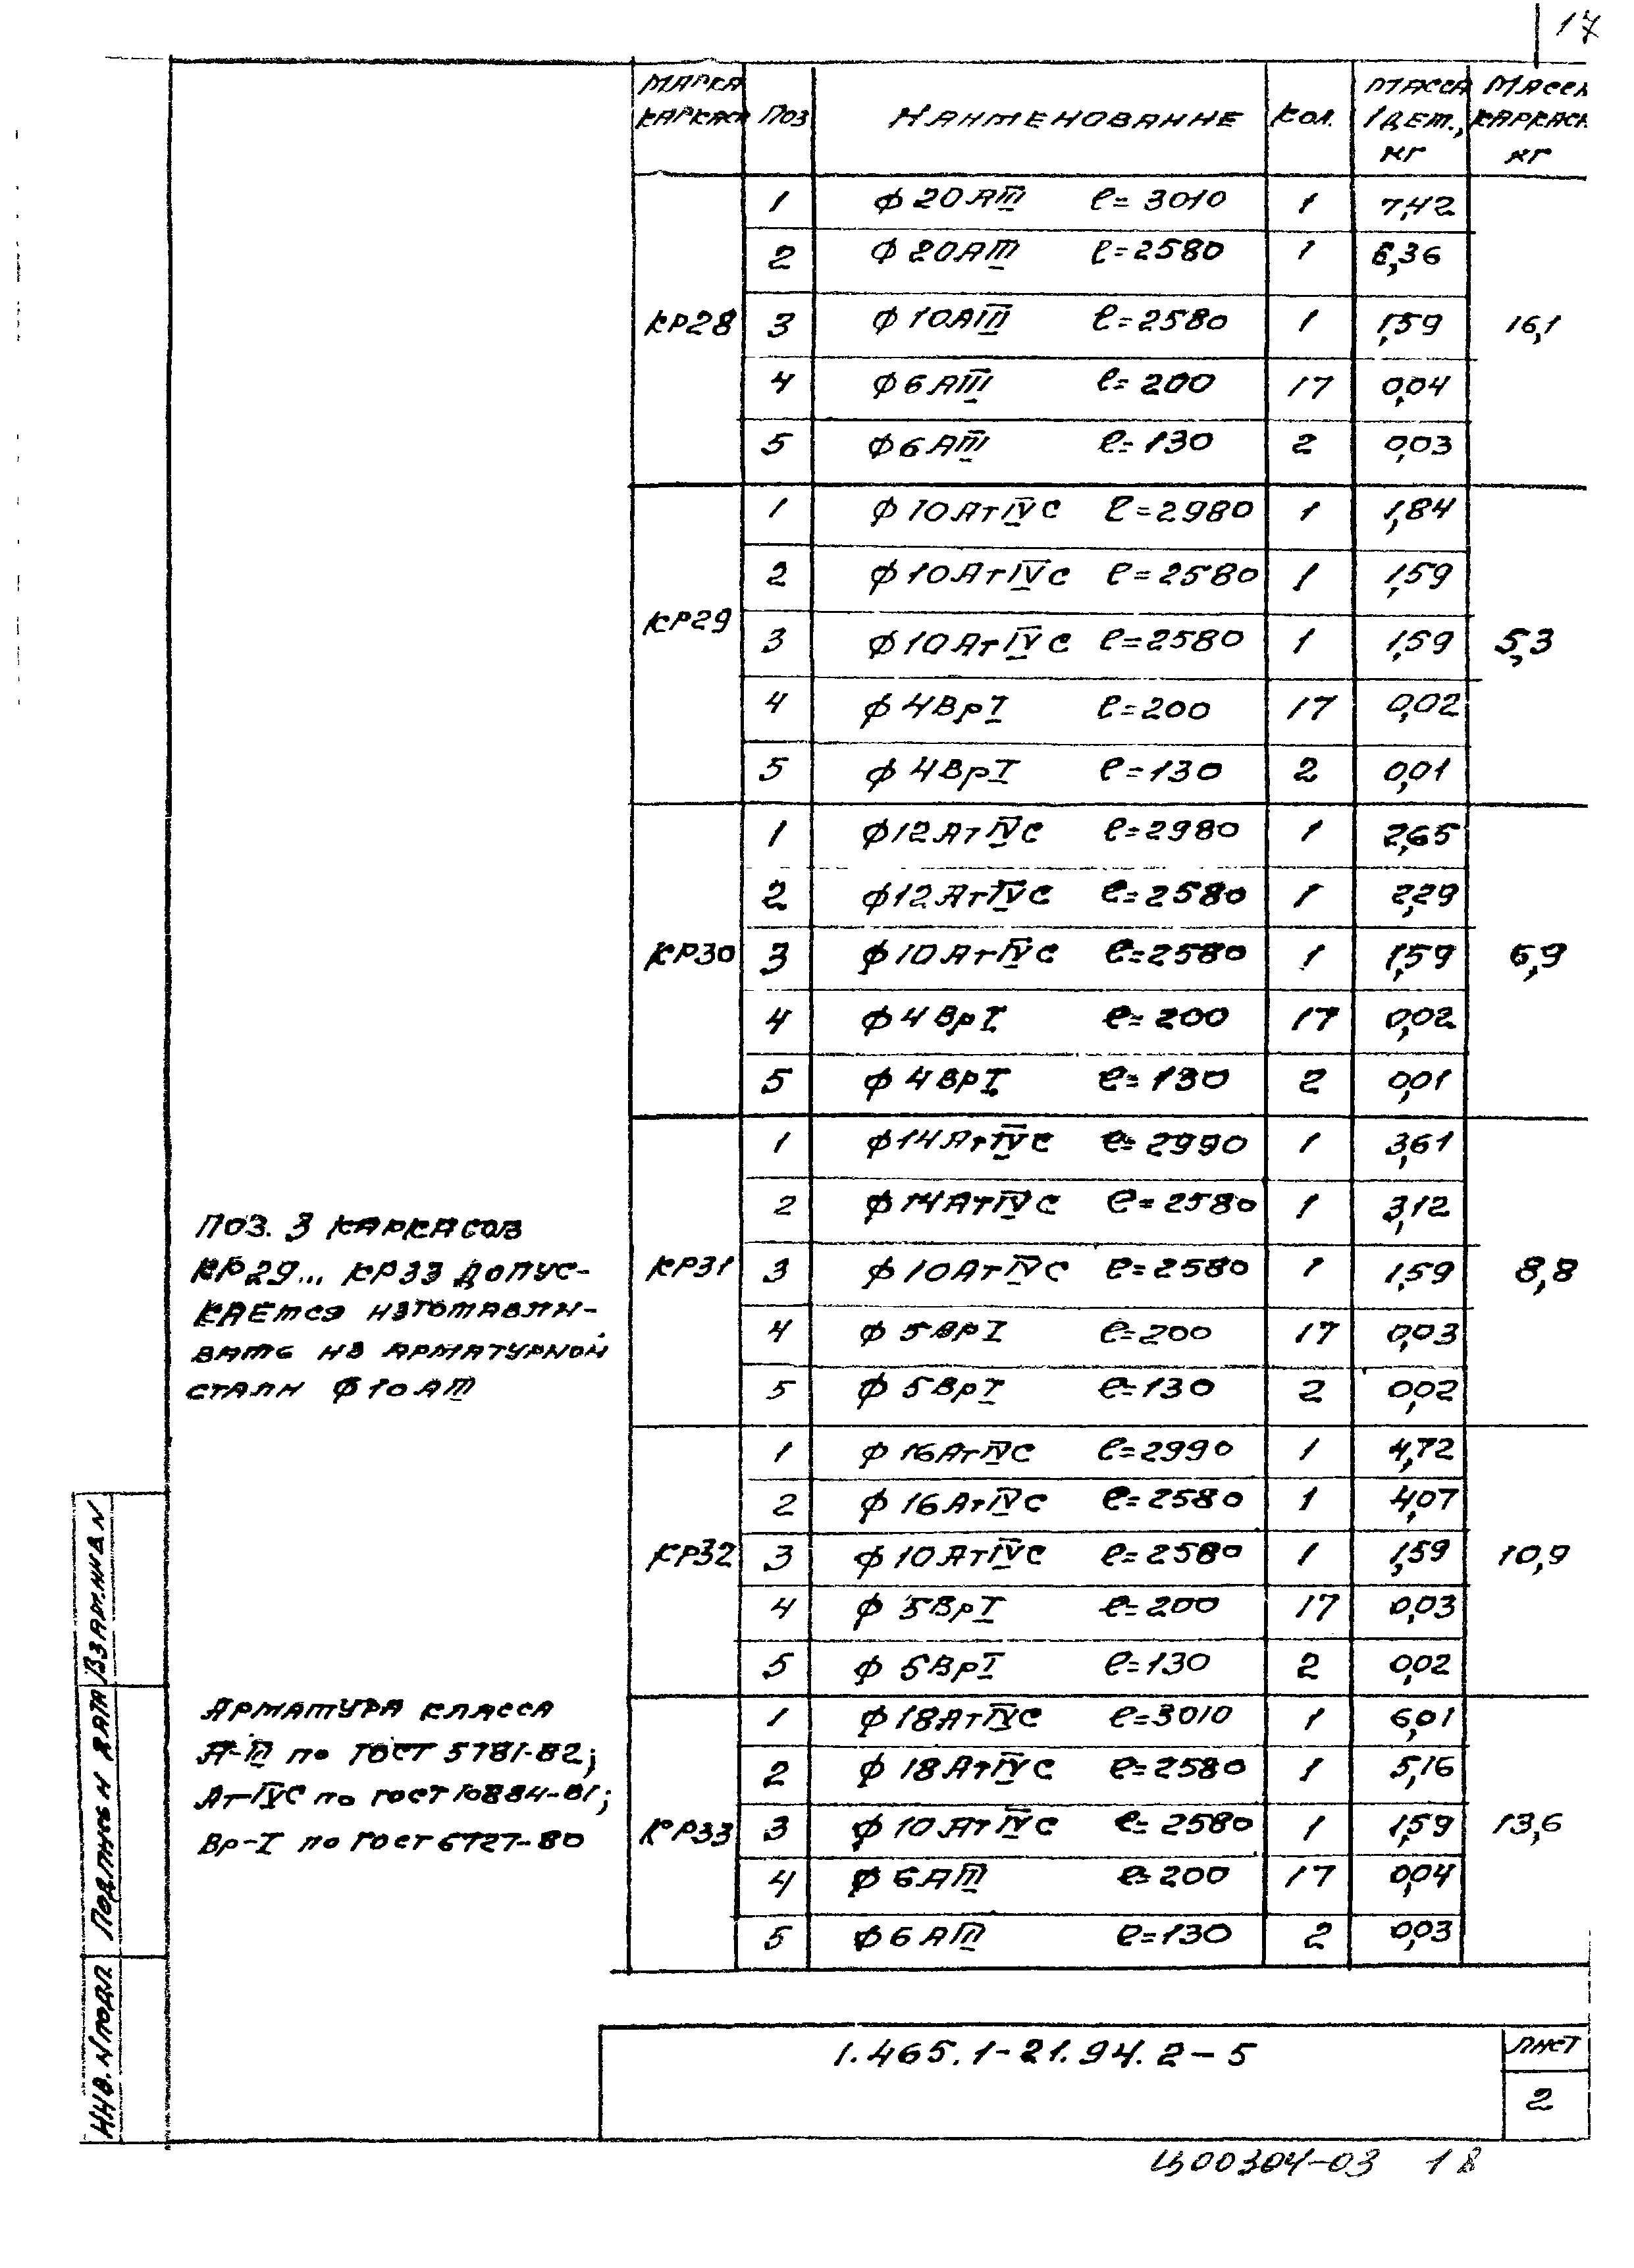 17
Марка каркаса Поз Наименование Кол. Масса 1 дет., кг Масса каркаса кг
КР28 16,1
1 ф20АIII ℓ=3010 1 7,42
2 ф20АIII ℓ=2580 1 6,36
3 ф10АIII ℓ=2580 1 1,59
4 ф6АIII ℓ=200 17 0,04
5 ф6АIII ℓ=130 2 0,03
КР29 5,3
1 ф10АтIVС ℓ=2980 1 1,84
2 ф10АтIVС ℓ=2580 1 1,59
3 ф10АтIVС ℓ=2580 1 1,59
4 ф4ВрI ℓ=200 17 0,02
5 ф4ВрI ℓ=130 2 0,01
КР30 6,9
1 ф12АтIVС ℓ=2980 1 2,65
2 ф12АтIVС ℓ=2580 1 2,29
3 ф10АтIVС ℓ=2580 1 1,59
4 ф4ВрI ℓ=200 17 0,02
5 ф4ВрI ℓ=130 2 0,01
КР31 8,8
1 ф14АтIVС ℓ=2990 1 3,61
2 ф14АтIVС ℓ=2580 1 3,12
3 ф10АтIVС ℓ=2580 1 1,59
4 ф5ВрI ℓ=200 17 0,03
5 ф5ВрI ℓ=130 2 0,02
КР32 10,9
1 ф16АтIVС ℓ=2990 1 4,72
2 ф16АтIVС ℓ=2580 1 4,07
3 ф10АтIVС ℓ=2580 1 1,59
4 ф5ВрI ℓ=200 17 0,03
5 ф5ВрI ℓ=130 2 0,02
КР33 13,6
1 ф18АтIVС ℓ=3010 1 6,01
2 ф18АтIVС ℓ=2580 1 5,16
3 ф10АтIVС ℓ=2580 1 1,59
4 ф6АIII ℓ=200 17 0,04
5 ф6АIII ℓ=130 2 0,03
Поз. 3 каркасов
КР29... КР33 допус-
кается изготавли-
вать из арматурной
стали ф10АIII
Арматура класса
А-III по ГОСТ 5781-82;
Ат-IVС по ГОСТ 10884-81;
Вр-I по ГОСТ 6727-80
Взам.инв.N
Подпись и дата
Инв. N подл
1.465.1-21.94.2-5
Лист
2
Ц00304-03 18